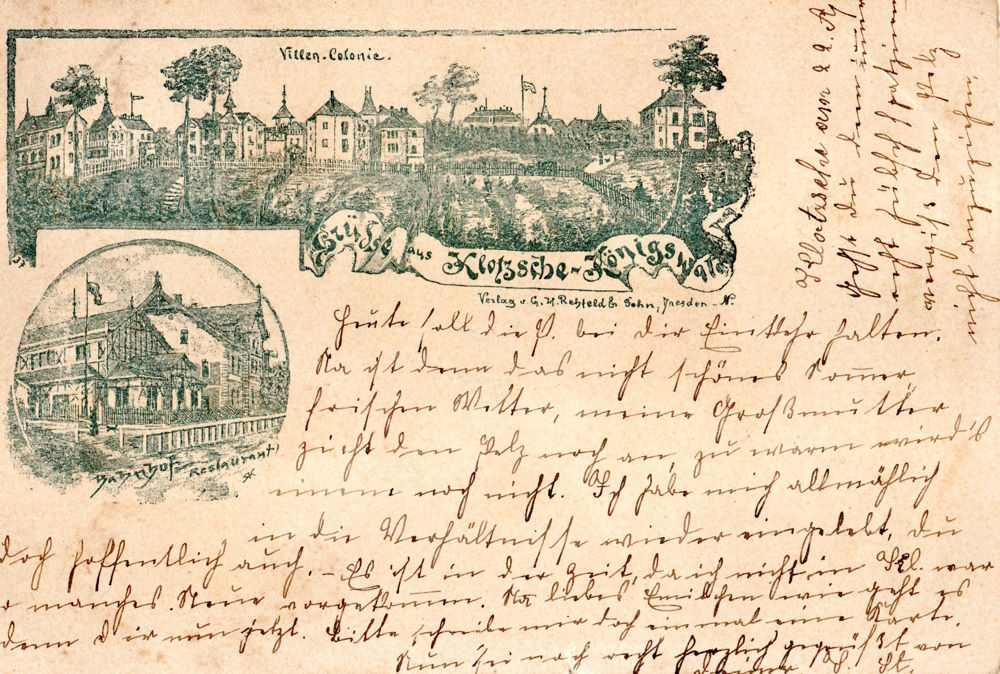 Villen-Colonie.
Grüsse aus Klotzsche-Königswald
Verlag v. C. H. Rehfeld & Sohn, Dresden-N.
Bahnhof (Restaurant)
Klotzsche am 2 2. A
Heute soll die P. bei dir Einkehr halten.
Na ist denn das nicht schönes Sommer
frischen Wetter, meine Großmutter
zieht den Pelz noch an, zu warm wird's
einem noch nicht. Ich habe mich allmählich
in die Verhältnisse wieder eingelebt, du
doch hoffentlich auch. – Es ist in der Zeit, da ich nicht in Kl. war
so manches Neue vorgekommen. Na liebes Emilchen wie geht es
denn dir nun jetzt. Bitte schreibe mir doch einmal eine Karte.
Nun sei noch recht herzlich gegrüßt von
deiner
Gehst du denn immer
noch hübsch spazieren